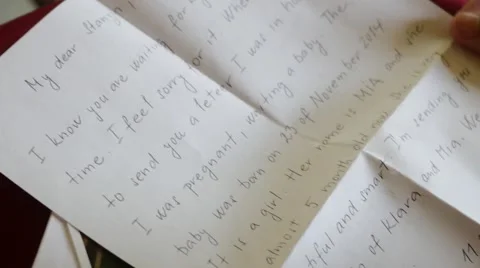 My dear
I know you are waiting for
time. I feel sorry for it. When
to send you a letter I was in
I was pregnant, waiting a baby. The
baby was born on 23 of November 2014
It is a girl. Her name is MIA and she
almost 5 month old now. She is
tiful and smart. I'm sending you
of Klara and Mia. We
11